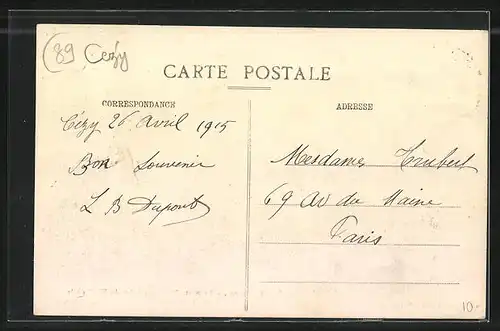 89 Cézy
CARTE POSTALE
CORRESPONDANCE
ADRESSE
Cézy 26 avril 1915
Bon Souvenir
L B Dupont
Mesdames Joubert
69 av du Maine
Paris
10.-